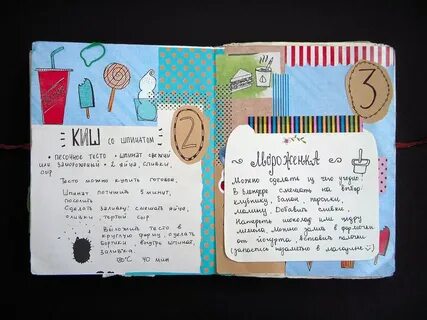 КИШ со шпинатом
• песочное тесто • шпинат свежий
или замороженный • 2 яйца, сливки,
сыр
Тесто можно купить готовое.
Шпинат потушить 5 минут,
посолить
Сделать заливку: смешать яйца,
сливки, тертый сыр
Выложить тесто в
круглую форму, сделать
бортики внутрь шпинат,
заливка.
180°С 40 мин
2
3
Мороженка
Можно сделать из чего угодно!
В блендере смешать на выбор
клубнику, банан, персики,
малину. Добавить сливки.
Натереть шоколад или цедру
лимона, можно залить в формочки
от йогурта, вставив палочки
(запастись незаметно в магазине)